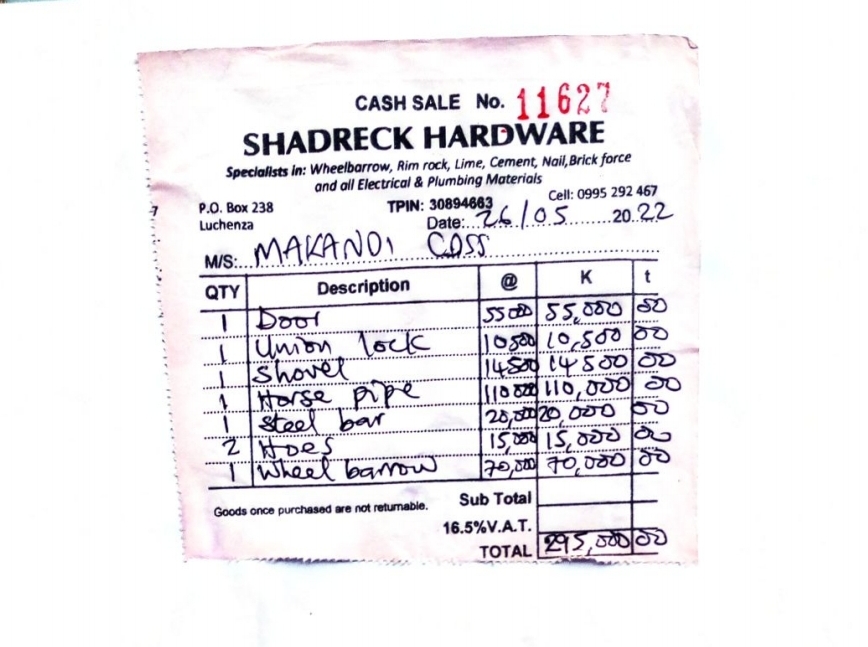 CASH SALE No. 11627
SHADRECK HARDWARE
Specialists in: Wheelbarrow, Rim rock, Lime, Cement, Nail,Brick force
and all Electrical & Plumbing Materials
P.O. Box 238 TPIN: 30894663 Cell: 0995 292 467
Luchenza Date: 26/05 2022
M/S: MAKANDI COSS
QTY Description @ K t
1 Door 5500 55,000 00
1 Union lock 10500 10,500 00
1 Shovel 14500 14500 00
1 Horse pipe 110000 110,000 00
1 Steel bar 20,000 20,000 00
2 Hoes 15,000 15,000 00
1 Wheel barrow 70,000 70,000 00
Goods once purchased are not returnable. Sub Total
16.5%V.A.T.
TOTAL 295,000 00